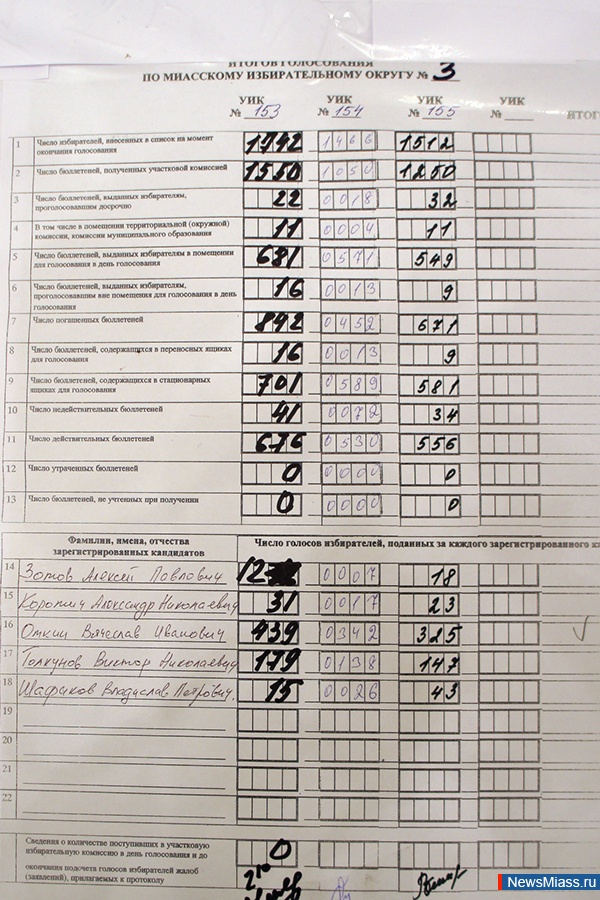 ИТОГОВ ГОЛОСОВАНИЯ
ПО МИАССКОМУ ИЗБИРАТЕЛЬНОМУ ОКРУГУ № 3
УИК УИК УИК УИК
№ 153 № 154 № 155 № ИТОГО
1 Число избирателей, внесенных в список на момент 1742 1466 1512
окончания голосования
2 Число бюллетеней, полученных участковой комиссией 1550 1050 1250
3 Число бюллетеней, выданных избирателям, 22 0018 32
проголосовавшим досрочно
4 В том числе в помещении территориальной (окружной) 11 0004 11
комиссии, комиссии муниципального образования
5 Число бюллетеней, выданных избирателям в помещении 681 0571 549
для голосования в день голосования
6 Число бюллетеней, выданных избирателям, 16 0013 9
проголосовавшим вне помещения для голосования в день
голосования
7 Число погашенных бюллетеней 842 0452 671
8 Число бюллетеней, содержащихся в переносных ящиках 16 0013 9
для голосования
9 Число бюллетеней, содержащихся в стационарных 701 0589 581
ящиках для голосования
10 Число недействительных бюллетеней 41 0072 34
11 Число действительных бюллетеней 676 0530 556
12 Число утраченных бюллетеней 0 0000 0
13 Число бюллетеней, не учтенных при получении 0 0000 0
Фамилии, имена, отчества
зарегистрированных кандидатов
Число голосов избирателей, поданных за каждого зарегистрированного
14 Зотов Алексей Павлович 12 0007 18
15 Александр Николаевич 31 0017 23
16 Вячеслав Иванович 439 0342 325
17 Толкунов Виктор Николаевич 179 0138 147
18 Шафиков Владислав Петрович. 15 0026 43
19
20
21
22
Сведения о количестве поступивших в участковую 0
избирательную комиссию в день голосования и до
окончания подсчета голосов избирателей жалоб
(заявлений), прилагаемых к протоколу
NewsMiass.ru